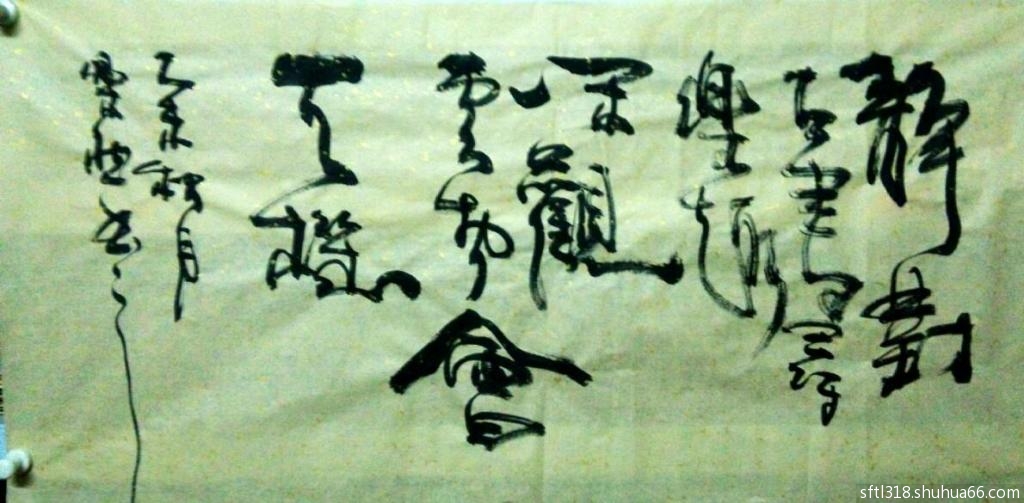 静對
古書尋
樂趣
閑觀
雲物會
天機
乙未秋月
书
sftl318.shuhua66.com